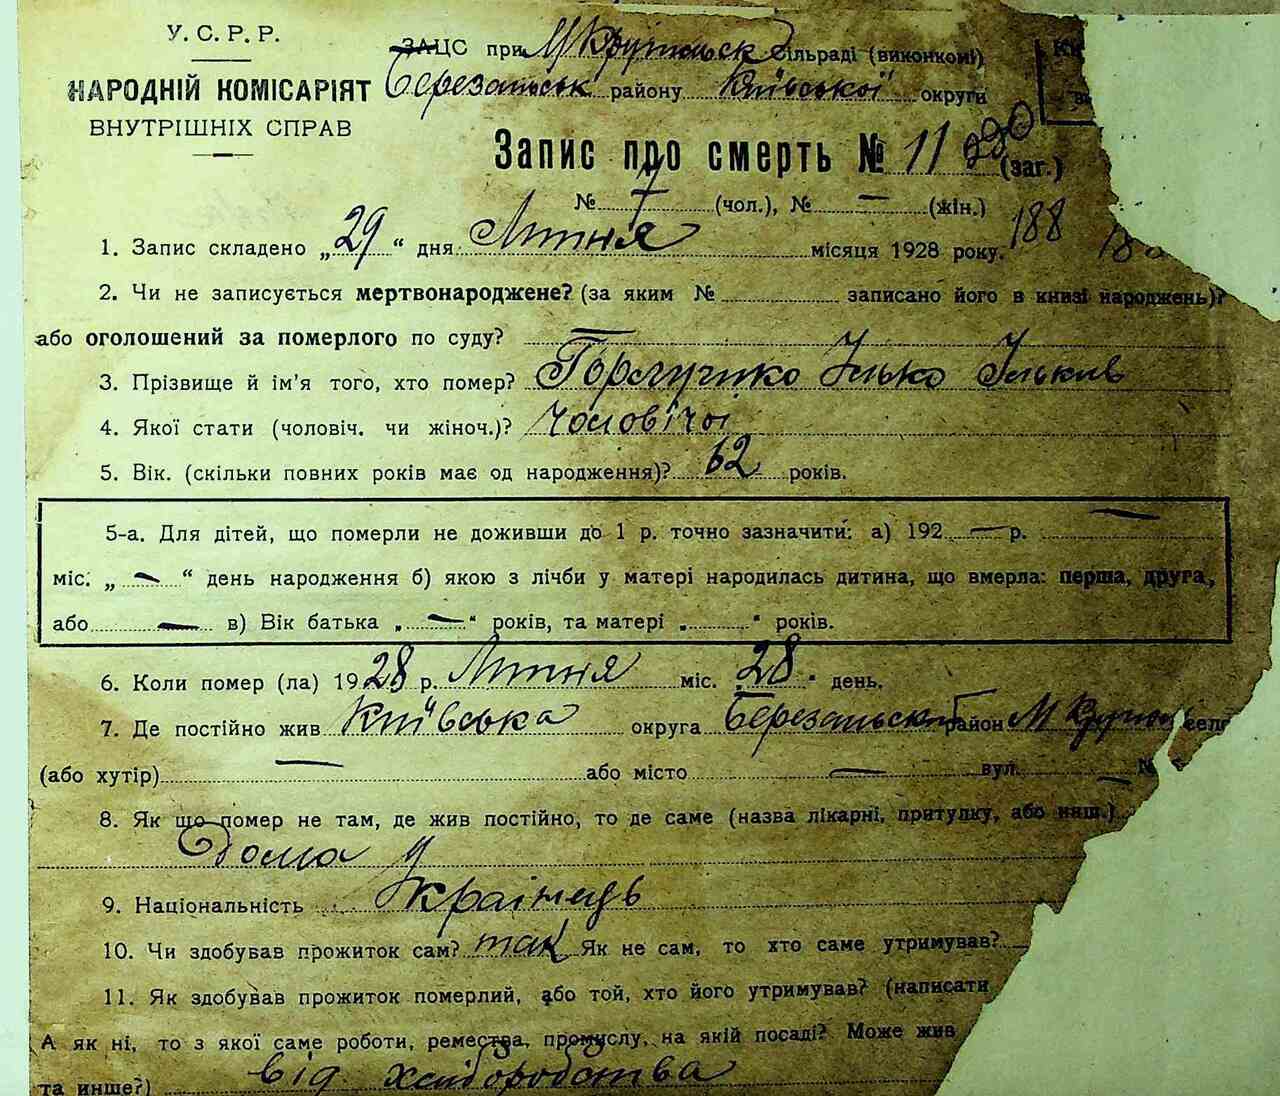 У. С. Р. Р.
НАРОДНІЙ КОМІСАРІЯТ
ВНУТРІШНІХ СПРАВ
ЗАЦС при М Крупольск сільраді (виконкомі)
Березанськ району Київської округи
Запис про смерть № 11 (заг.)
№ 7 (чол.), № — (жін.)
1. Запис складено „29“ дня Лютня місяця 1928 року. 188
2. Чи не записується мертвонароджене? (за яким № записано його в книзі народжень)?
або оголошений за померлого по суду?
3. Прізвище й ім'я того, хто помер? Ілько Ільків
4. Якої стати (чоловіч. чи жіноч.)? чоловічої
5. Вік. (скільки повних років має од народження)? 62 років.
5-а. Для дітей, що померли не доживши до 1 р. точно зазначити: а) 192 — р. —
міс. „ — “ день народження б) якою з лічби у матері народилась дитина, що вмерла: перша, друга,
або — в) Вік батька „ — “ років, та матері „ “ років.
6. Коли помер (ла) 1928 р. Лютня міс. „28“ день.
7. Де постійно жив Київська округа Березанський район М Крупол село
(або хутір) — або місто — вул. — №
8. Як що помер не там, де жив постійно, то де саме (назва лікарні, притулку, або инш.)
Дома
9. Національність Українець
10. Чи здобував прожиток сам? так Як не сам, то хто саме утримував?
11. Як здобував прожиток померлий, або той, хто його утримував? (написати
А як ні, то з якої саме роботи, ремества, промислу, на якій посаді? Може жив
та инше?) від хліборобства